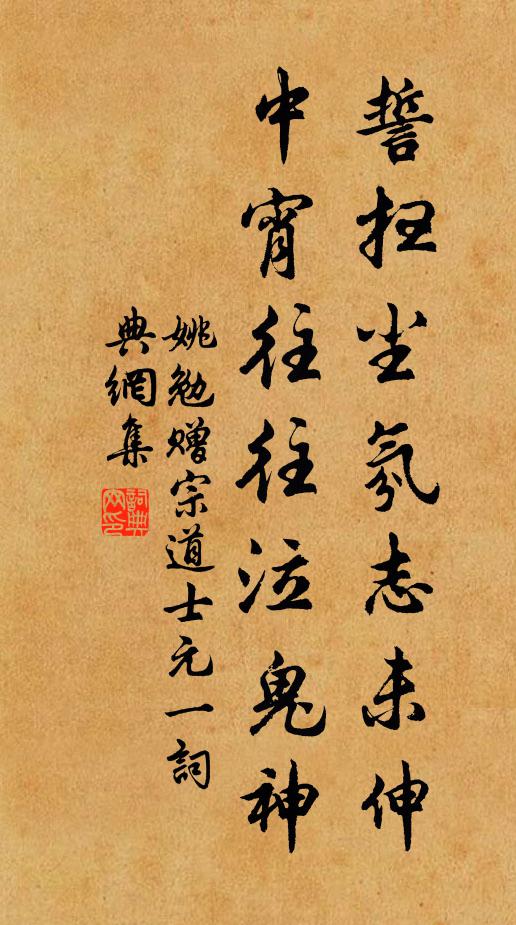 誓扫尘氛志未伸
中宵往往泣鬼神
姚勉赠宗道士元一詞
典網集
詞典
网印